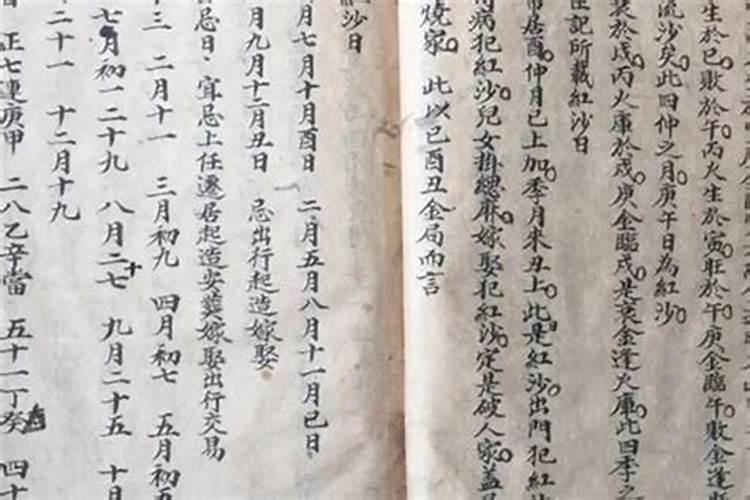 生於巳敗於午丙火生於寅旺於午庚金臨午敗金逢
流沙矣此四仲之月庚午日為紅沙
於戌丙火庫於戌庚金臨戌是衰金逢火庫此四季之
記所載紅沙日
居酉仲月已上加季月未丑上此是紅沙出門犯紅
病犯紅沙兒女掛總麻嫁娶犯紅沙定是破人家蓋
燒家 此以巳酉丑金局而言
紅沙日
月七月十月酉日 二月五月八月十一月巳日
月九月十二月丑日 忌出行起造嫁娶
忌日 宜忌上任遷居起造安葬嫁娶出行交易
十三 二月十一 三月初九 四月初七 五月初五
七月初一二十九 八月二十七 九月二十五 十月
二十一 十二月十九
正七連庚甲 二八乙辛當 五十一丁癸 四十